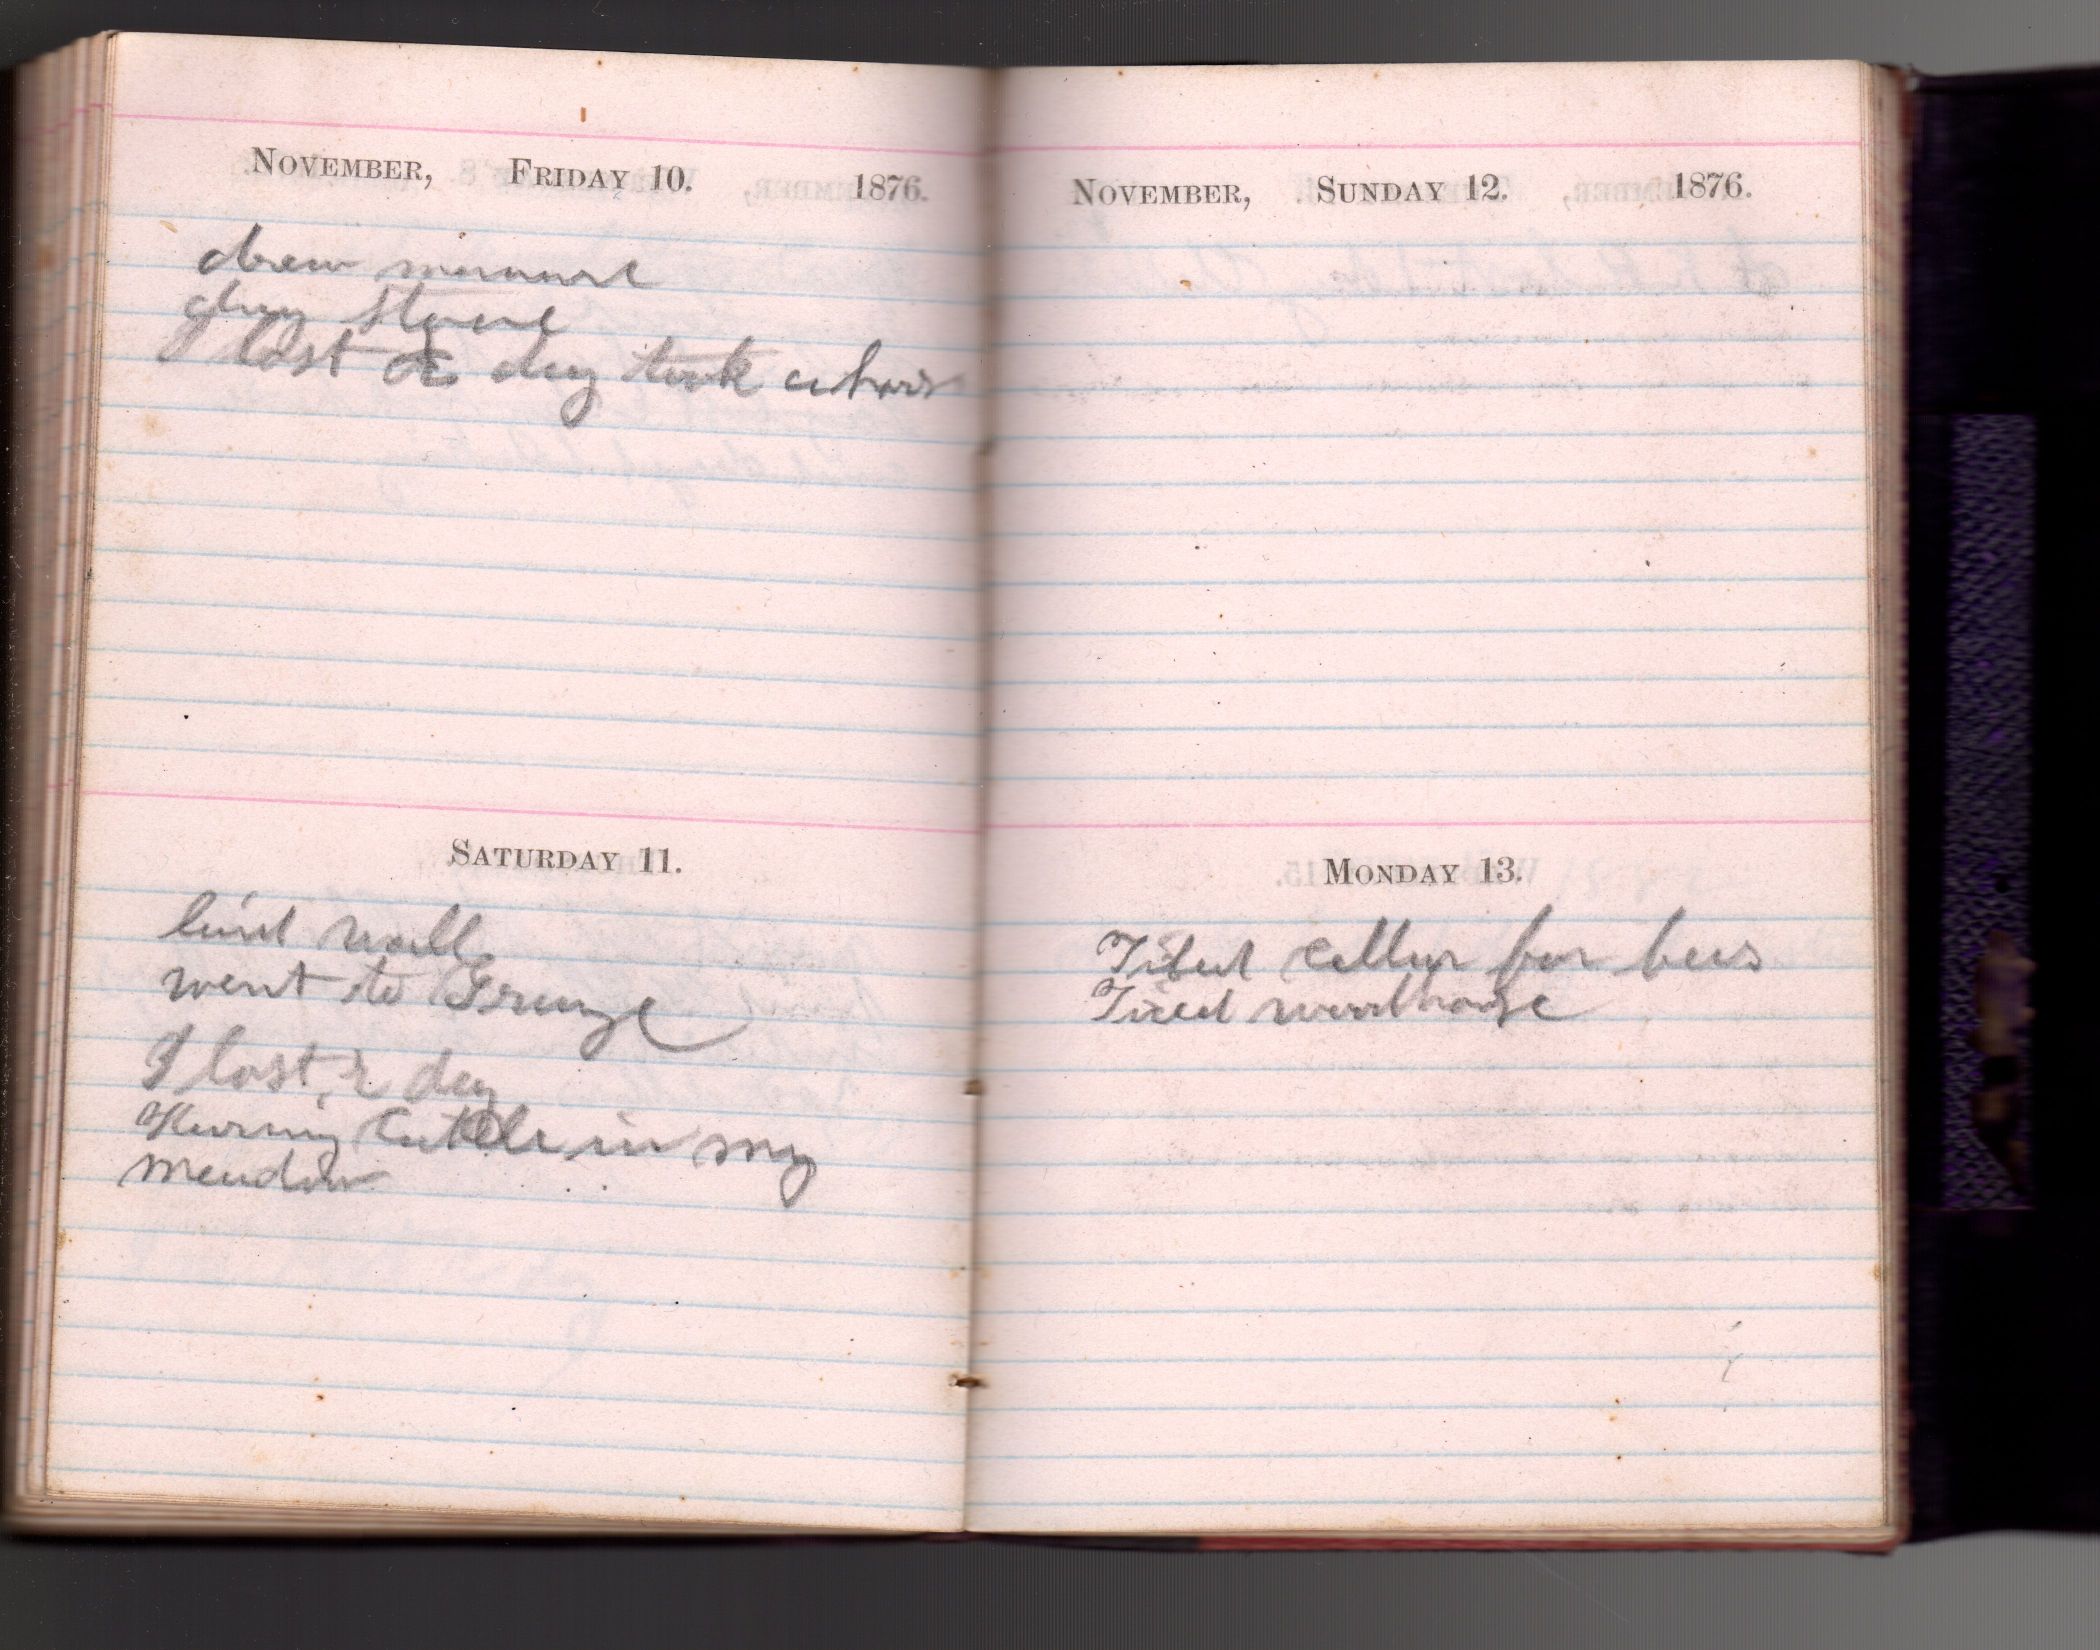 NOVEMBER, FRIDAY 10. 1876.
drew manure
dug stone
I lost a day took
SATURDAY 11.
laid wall
went to Grange
I lost day
Having Cattle in my
meadow
NOVEMBER, SUNDAY 12. 1876.
MONDAY 13.
cellar for bees
woodhouse